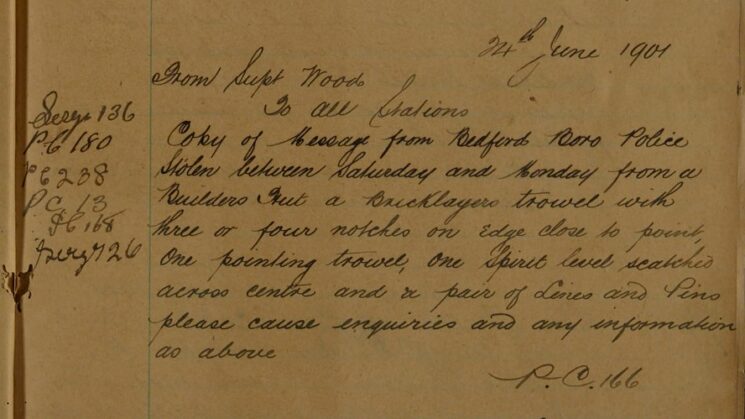 24th June 1901
From Supt Wood
To all Stations
Sergt 136
PC 180
PC 238
PC 13
PC 168
Sergt 126
Copy of Message from Bedford Boro Police
Stolen between Saturday and Monday from a
Builders Hut a Bricklayers trowel with
three or four notches on Edge close to point,
One pointing trowel, One Spirit level scatched
across centre and a pair of Lines and Pins
please cause enquiries and any information
as above
P.C. 166